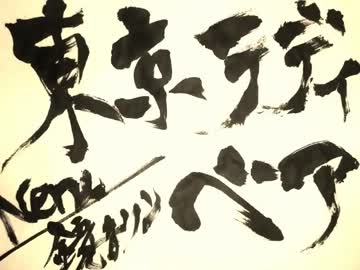 東京テディ
ベア
Neru
鏡音リン